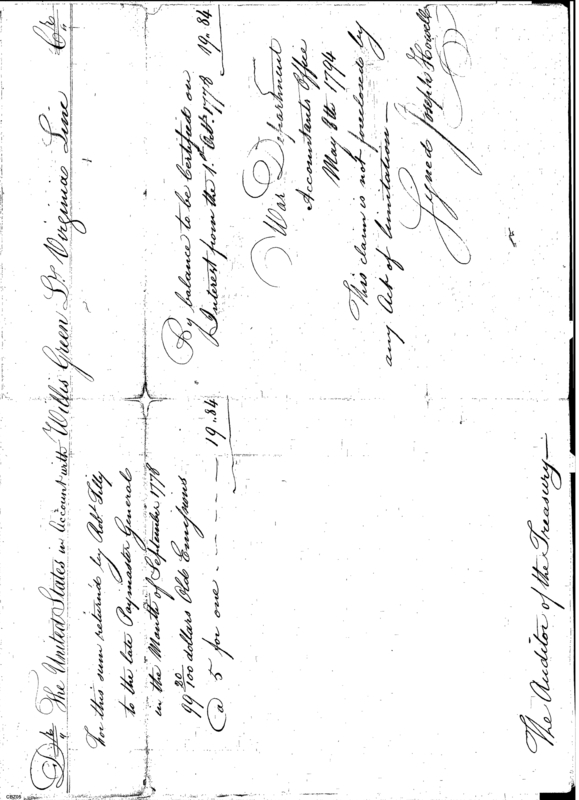 Dr The United States in account with Willis Green Lt Virginia Line Cr
For this sum returned by Robt Tilly
to the late Paymaster General
in the Month of September 1778
99 20/100 dollars Old Emissions
@ 5 for one - - - - - 19 "84
By balance to be Certified on
Interest from the 1st Octr 1778 19 "84
War Department
Accountants Office
May 8th 1794
This claim is not foreclosed by
any Act of limitation —
Signed Joseph Howell
The Auditor of the Treasury —